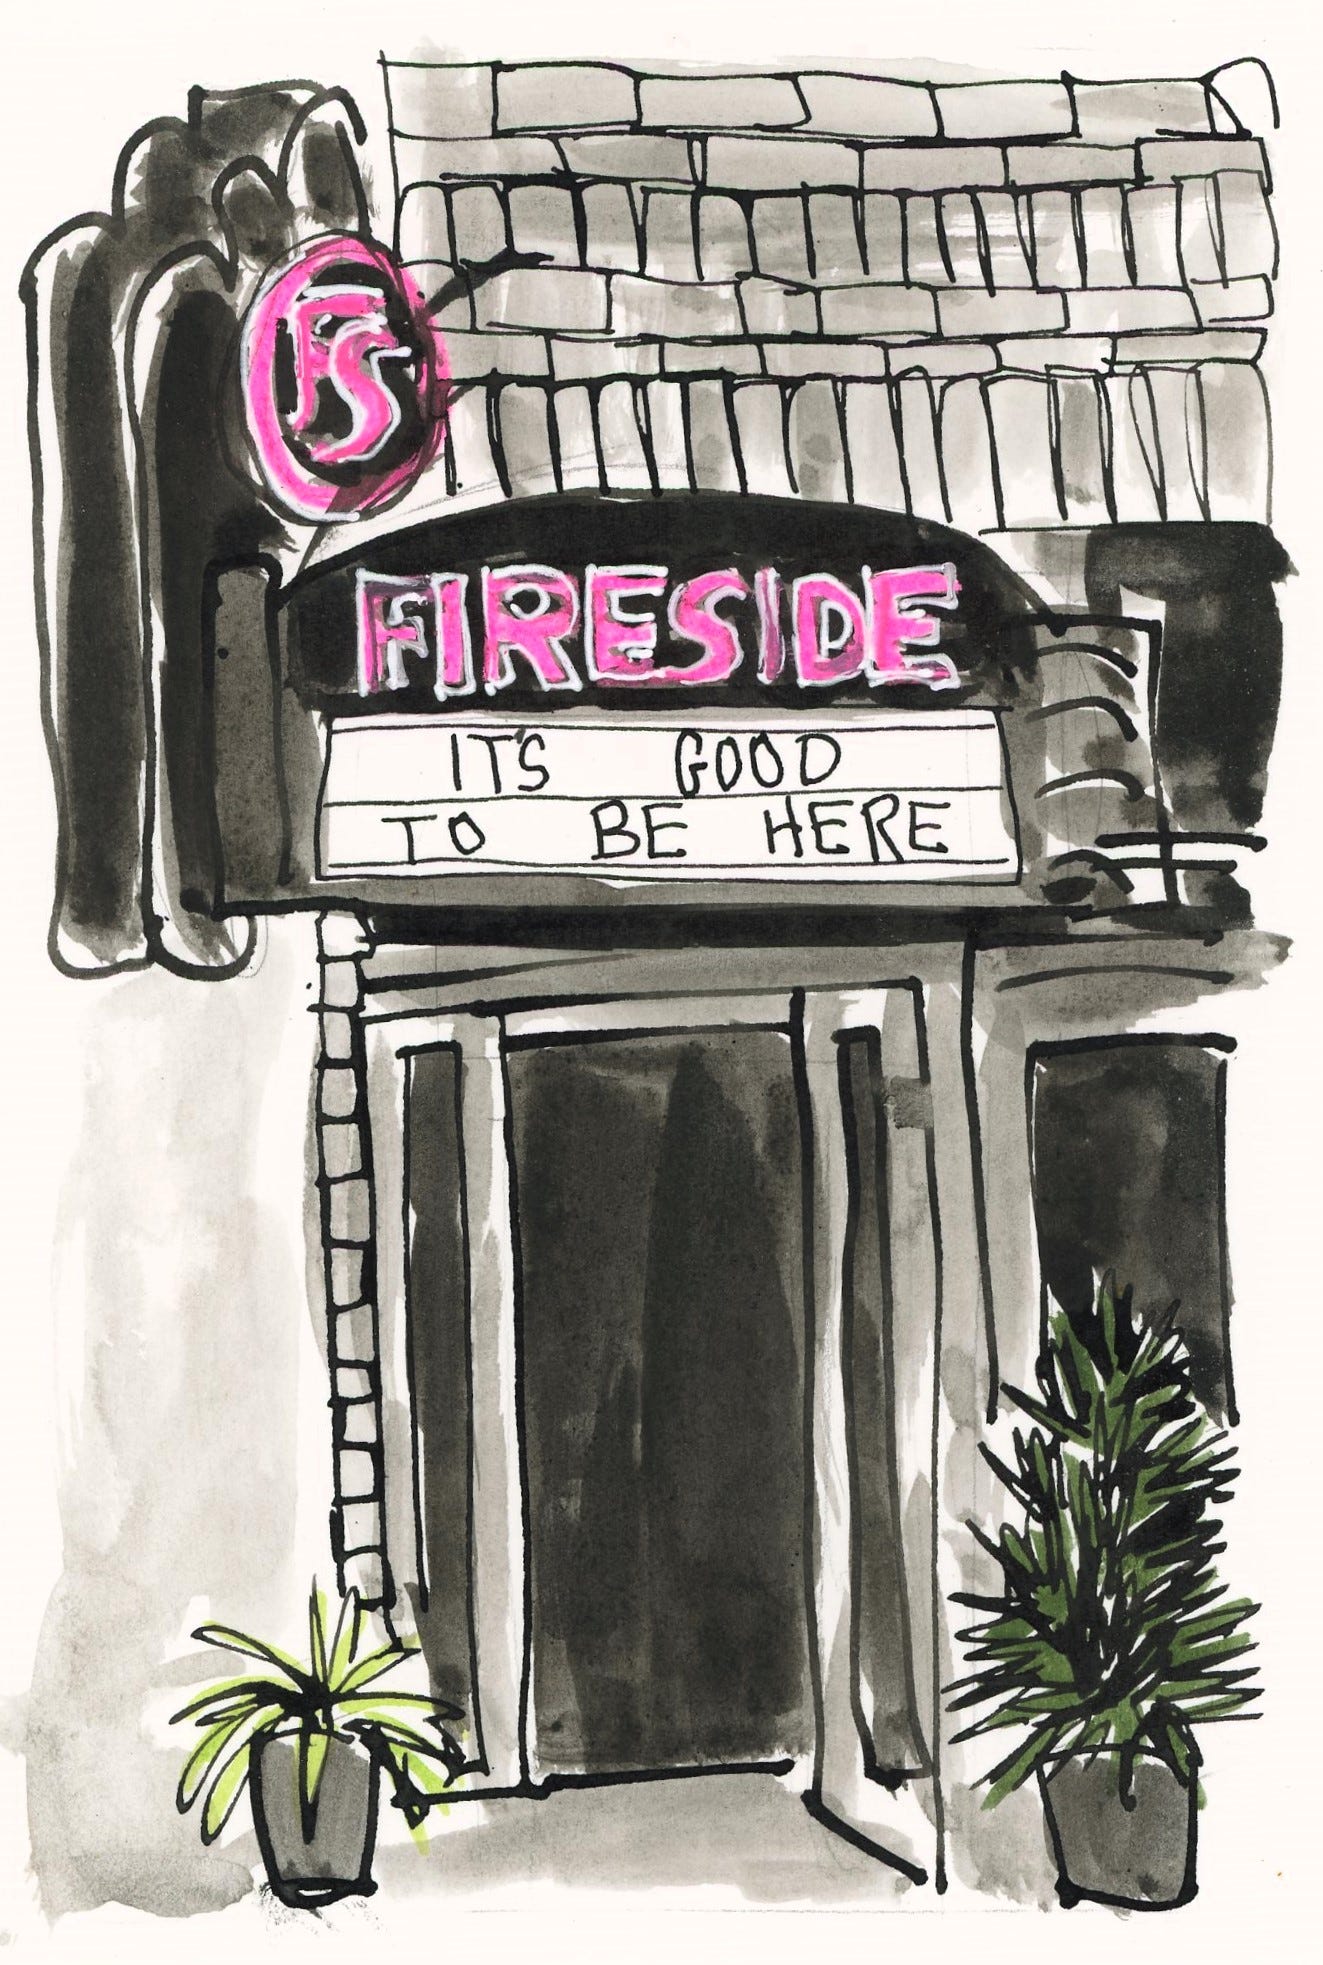 FS
FIRESIDE
IT'S GOOD
TO BE HERE